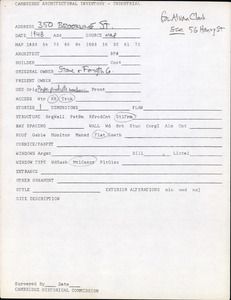 CAMBRIDGE ARCHITECTURAL INVENTORY - INDUSTRIAL
ADDRESS 350 BROOKLINE ST.
See 56 Henry St
DATE 1948 Add SOURCE map
MAP 1830 54 73 86 94 1903 16 30 61 71
ARCHITECT BP#
BUILDER
ORIGINAL OWNER Stone & Forsyth Co.
USE Orig Paper products
ACCESS Wtr RR Truck
STORIES 1 DIMENSIONS PLAN
STRUCTURE BrgWall PstBm RfrcdCnc StlFrm
BAY SPACING WALL Wd Brk Stuc CorgI Alm Cnt
ROOF Gable Monitor Mansd Flat Sawth
CORNICE/PARPET
WINDOWS Arngmt Sill Lintel
WINDOW TYPE WdSash MtlCasmt PltGlss
ENTRANCE
OTHER ORNAMENT
STYLE EXTERIOR ALTERATIONS min mod maj
SITE DESCRIPTION
Surveyed By Date
CAMBRIDGE HISTORICAL COMMISSION